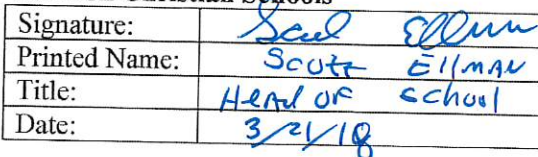 Christian Schools
Signature: Scott Ellman
Printed Name: Scott Ellman
Title: Head of School
Date: 3/21/18